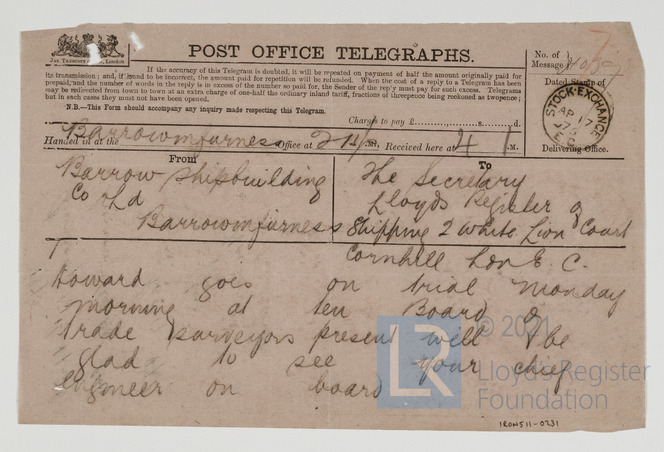 POST OFFICE TELEGRAPHS.
No. of
Message
If the accuracy of this Telegram is doubted, it will be repeated on payment of half the amount originally paid for
its transmission; and, if found to be incorrect, the amount paid for repetition will be refunded. When the cost of a reply to a Telegram has been
prepaid, and the number of words in the reply is in excess of the number so paid for, the Sender of the reply must pay for such excess. Telegrams
may be redirected from town to town at an extra charge of one-half the ordinary inland tariff, fractions of threepence being reckoned as twopence;
but in such cases they must not have been opened.
N.B.—This Form should accompany any inquiry made respecting this Telegram.
Dated Stamp of
STOCK-EXCHANGE
AP 17
79
E C
Delivering Office.
Charges to pay £ s. d.
Handed in at the Barrowinfurness Office at 2 .M. Received here at 4 1 .M.
From
To
Barrow Shipbuilding
Co Ld
Barrowinfurness
The Secretary
Lloyds Register of
Shipping 2 White Lion Court
Cornhill Lon E. C.
Howard goes on trial Monday
morning at ten Board of
trade surveyors present will be
glad to see your chief
engineer on board
© 2021
LR
Lloyd's Register
Foundation
IRON511-0231